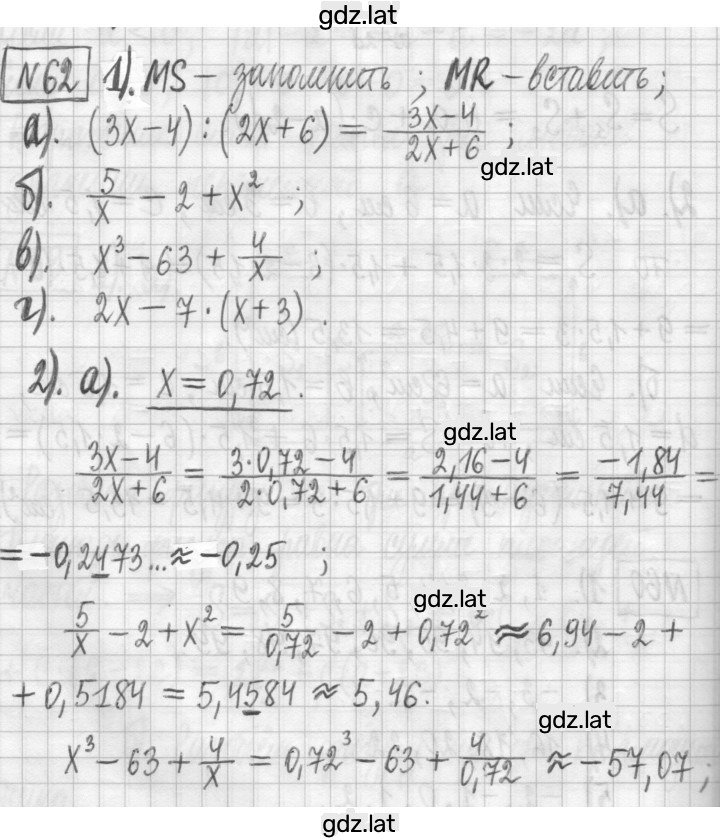 gdz.lat
N 62 1). MS – запомнить ; MR – вставить ;
а). (3x−4) : (2x+6) = (3x−4)/(2x+6) ;
gdz.lat
б). 5/x − 2 + x² ;
в). x³ − 63 + 4/x ;
г). 2x − 7 · (x+3) .
2). а). x = 0,72 .
gdz.lat
(3x−4)/(2x+6) = (3·0,72−4)/(2·0,72+6) = (2,16−4)/(1,44+6) = (−1,84)/(7,44) =
= −0,2473... ≈ −0,25 ;
gdz.lat
5/x − 2 + x² = 5/0,72 − 2 + 0,72² ≈ 6,94 − 2 +
+ 0,5184 = 5,4584 ≈ 5,46.
gdz.lat
x³ − 63 + 4/x = 0,72³ − 63 + 4/0,72 ≈ −57,07 ;
gdz.lat